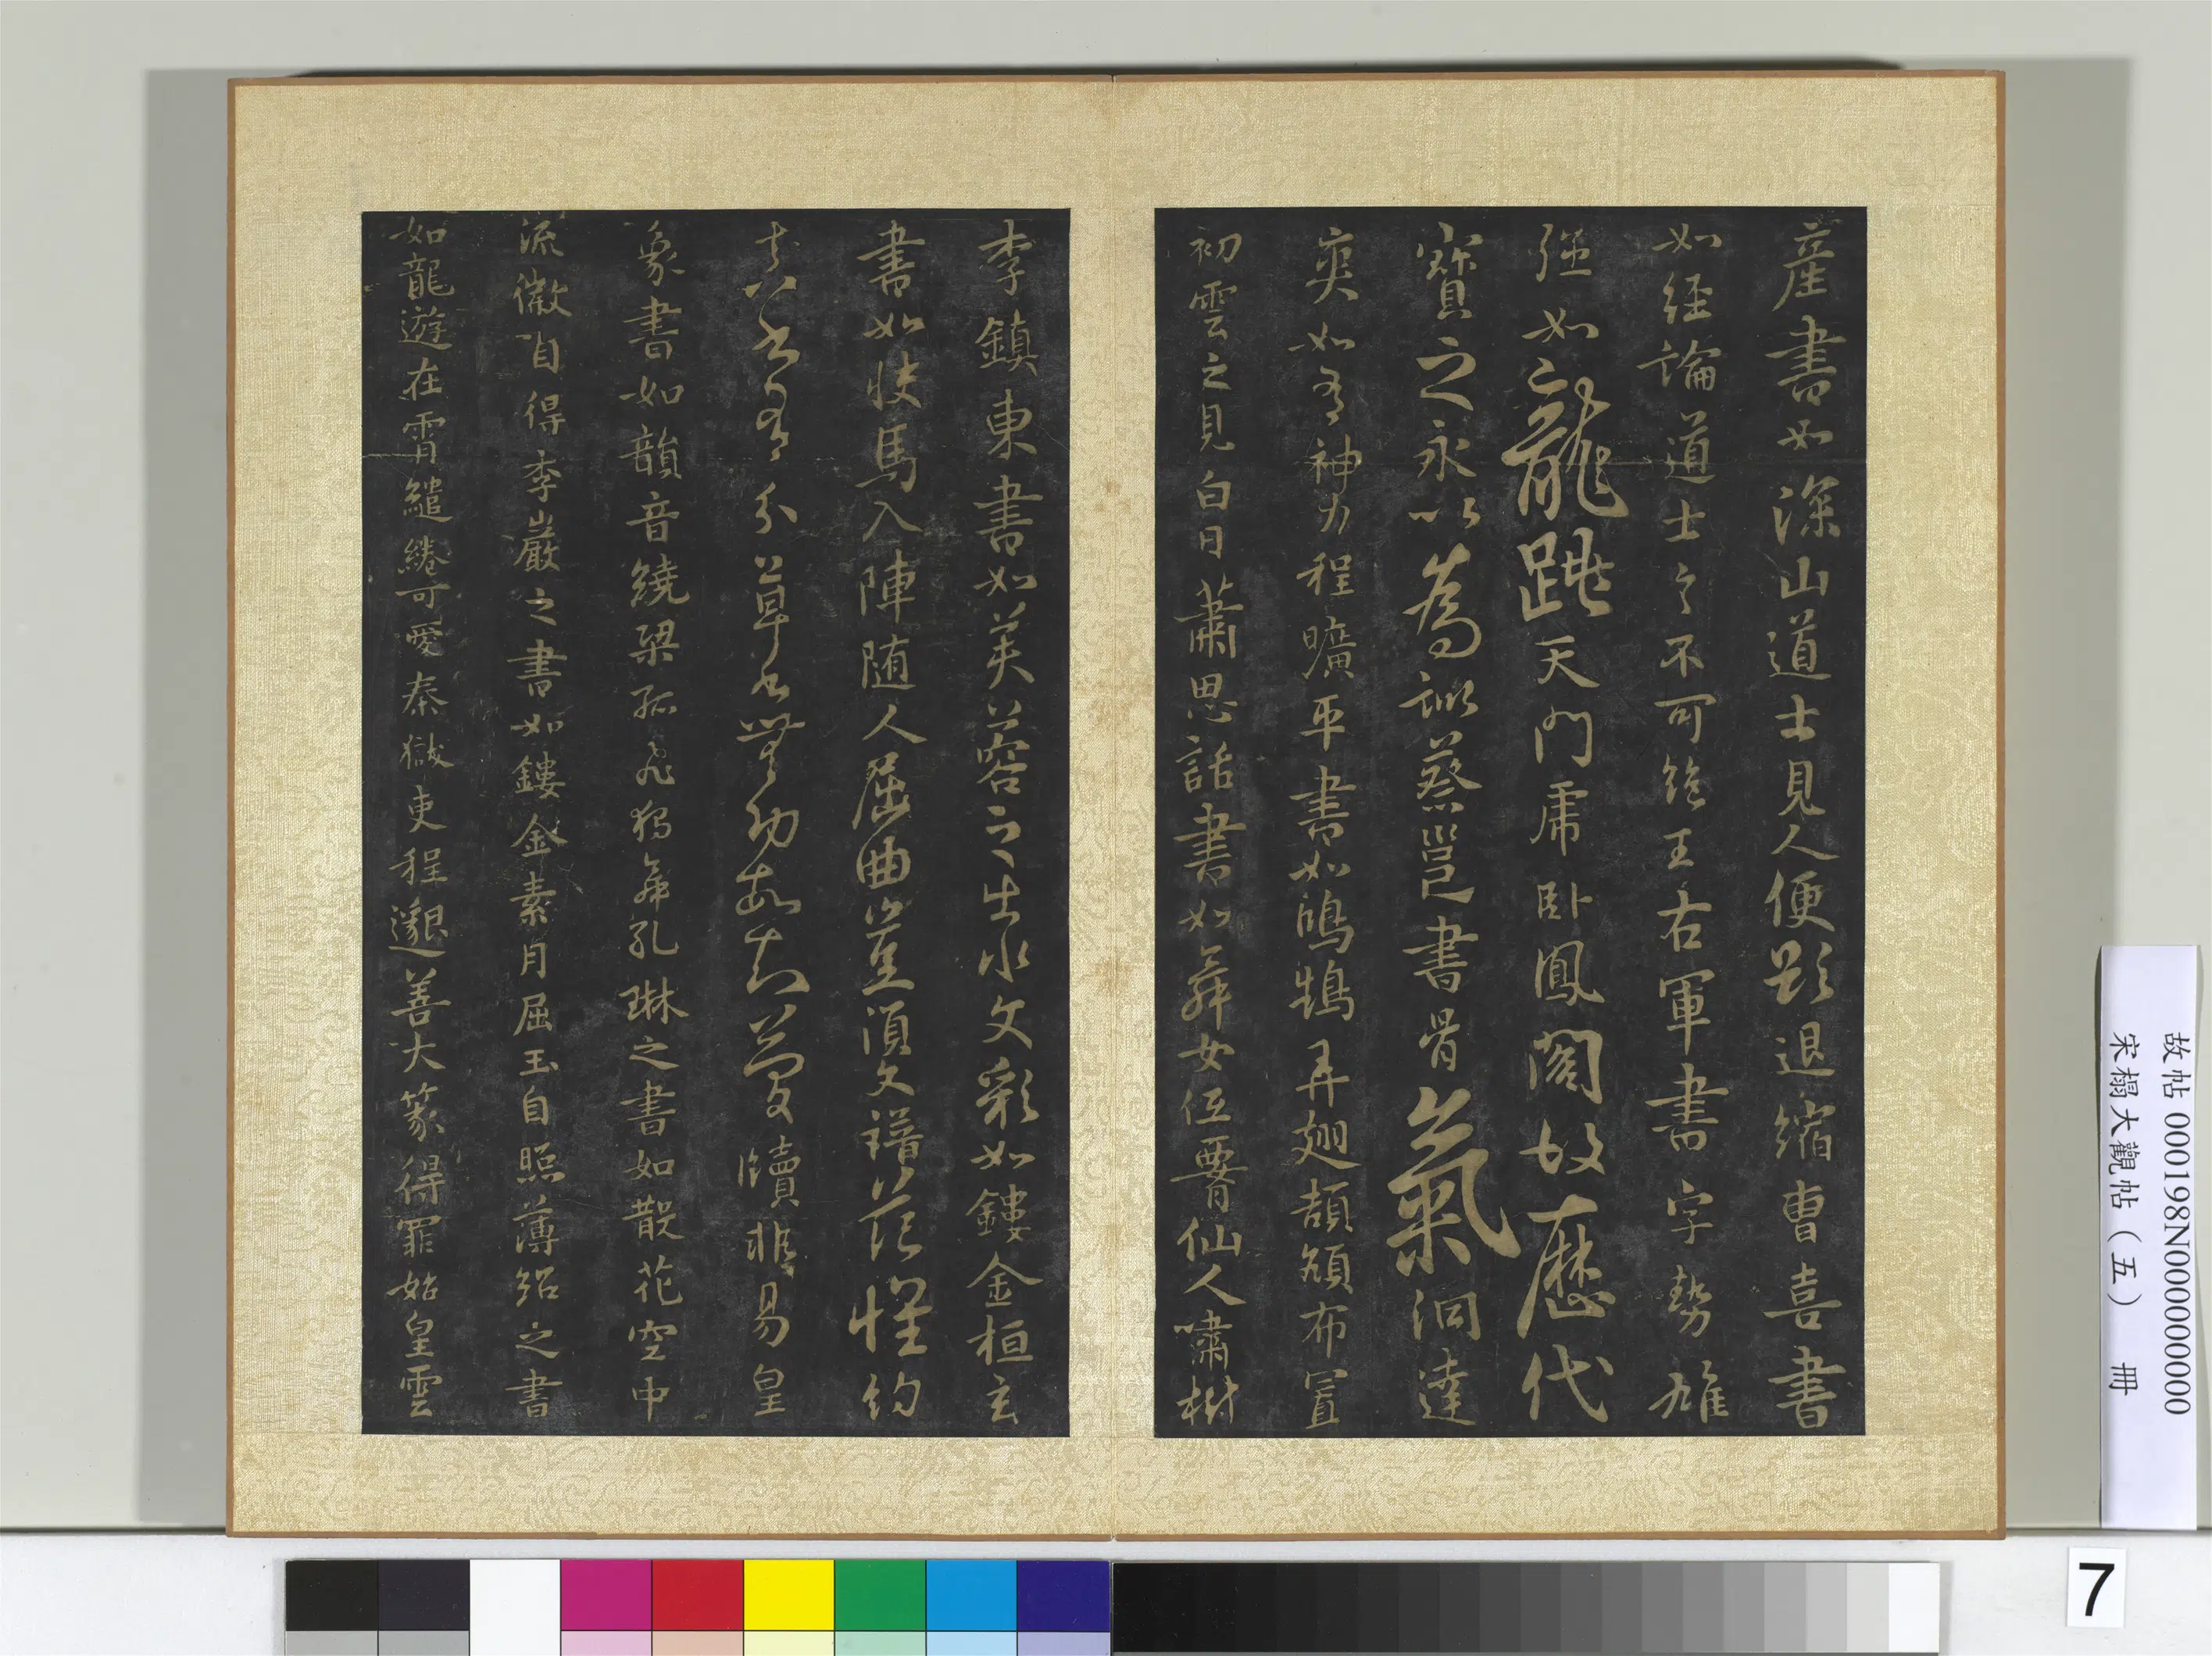 産書如深山道士見人便欲退縮曹喜書
如經論道士言不可絶王右軍書字勢雄
强如龍跳天門虎卧鳳閣故歷代
寶之永以為訓蔡邕書骨氣洞達
爽如有神力程曠平書如鴻鵠弄翅頡頏布置
初雲之見白日蕭思話書如舞女低腰仙人嘯樹
李鎮東書如芙蓉之出水文彩如鏤金桓玄
書如快馬入陣随人屈曲豈須文譜范懷約
真書有分草書無功故知簡牘非易皇
象書如韻音繞梁孤飛獨舞孔琳之書如散花空中
流徽自得李巖之書如鏤金素月屈玉自照薄紹之書
如龍遊在霄繾綣可愛秦獄吏程邈善大篆得罪始皇雲
故帖 000198N000000000
宋榻大觀帖(五) 冊
7